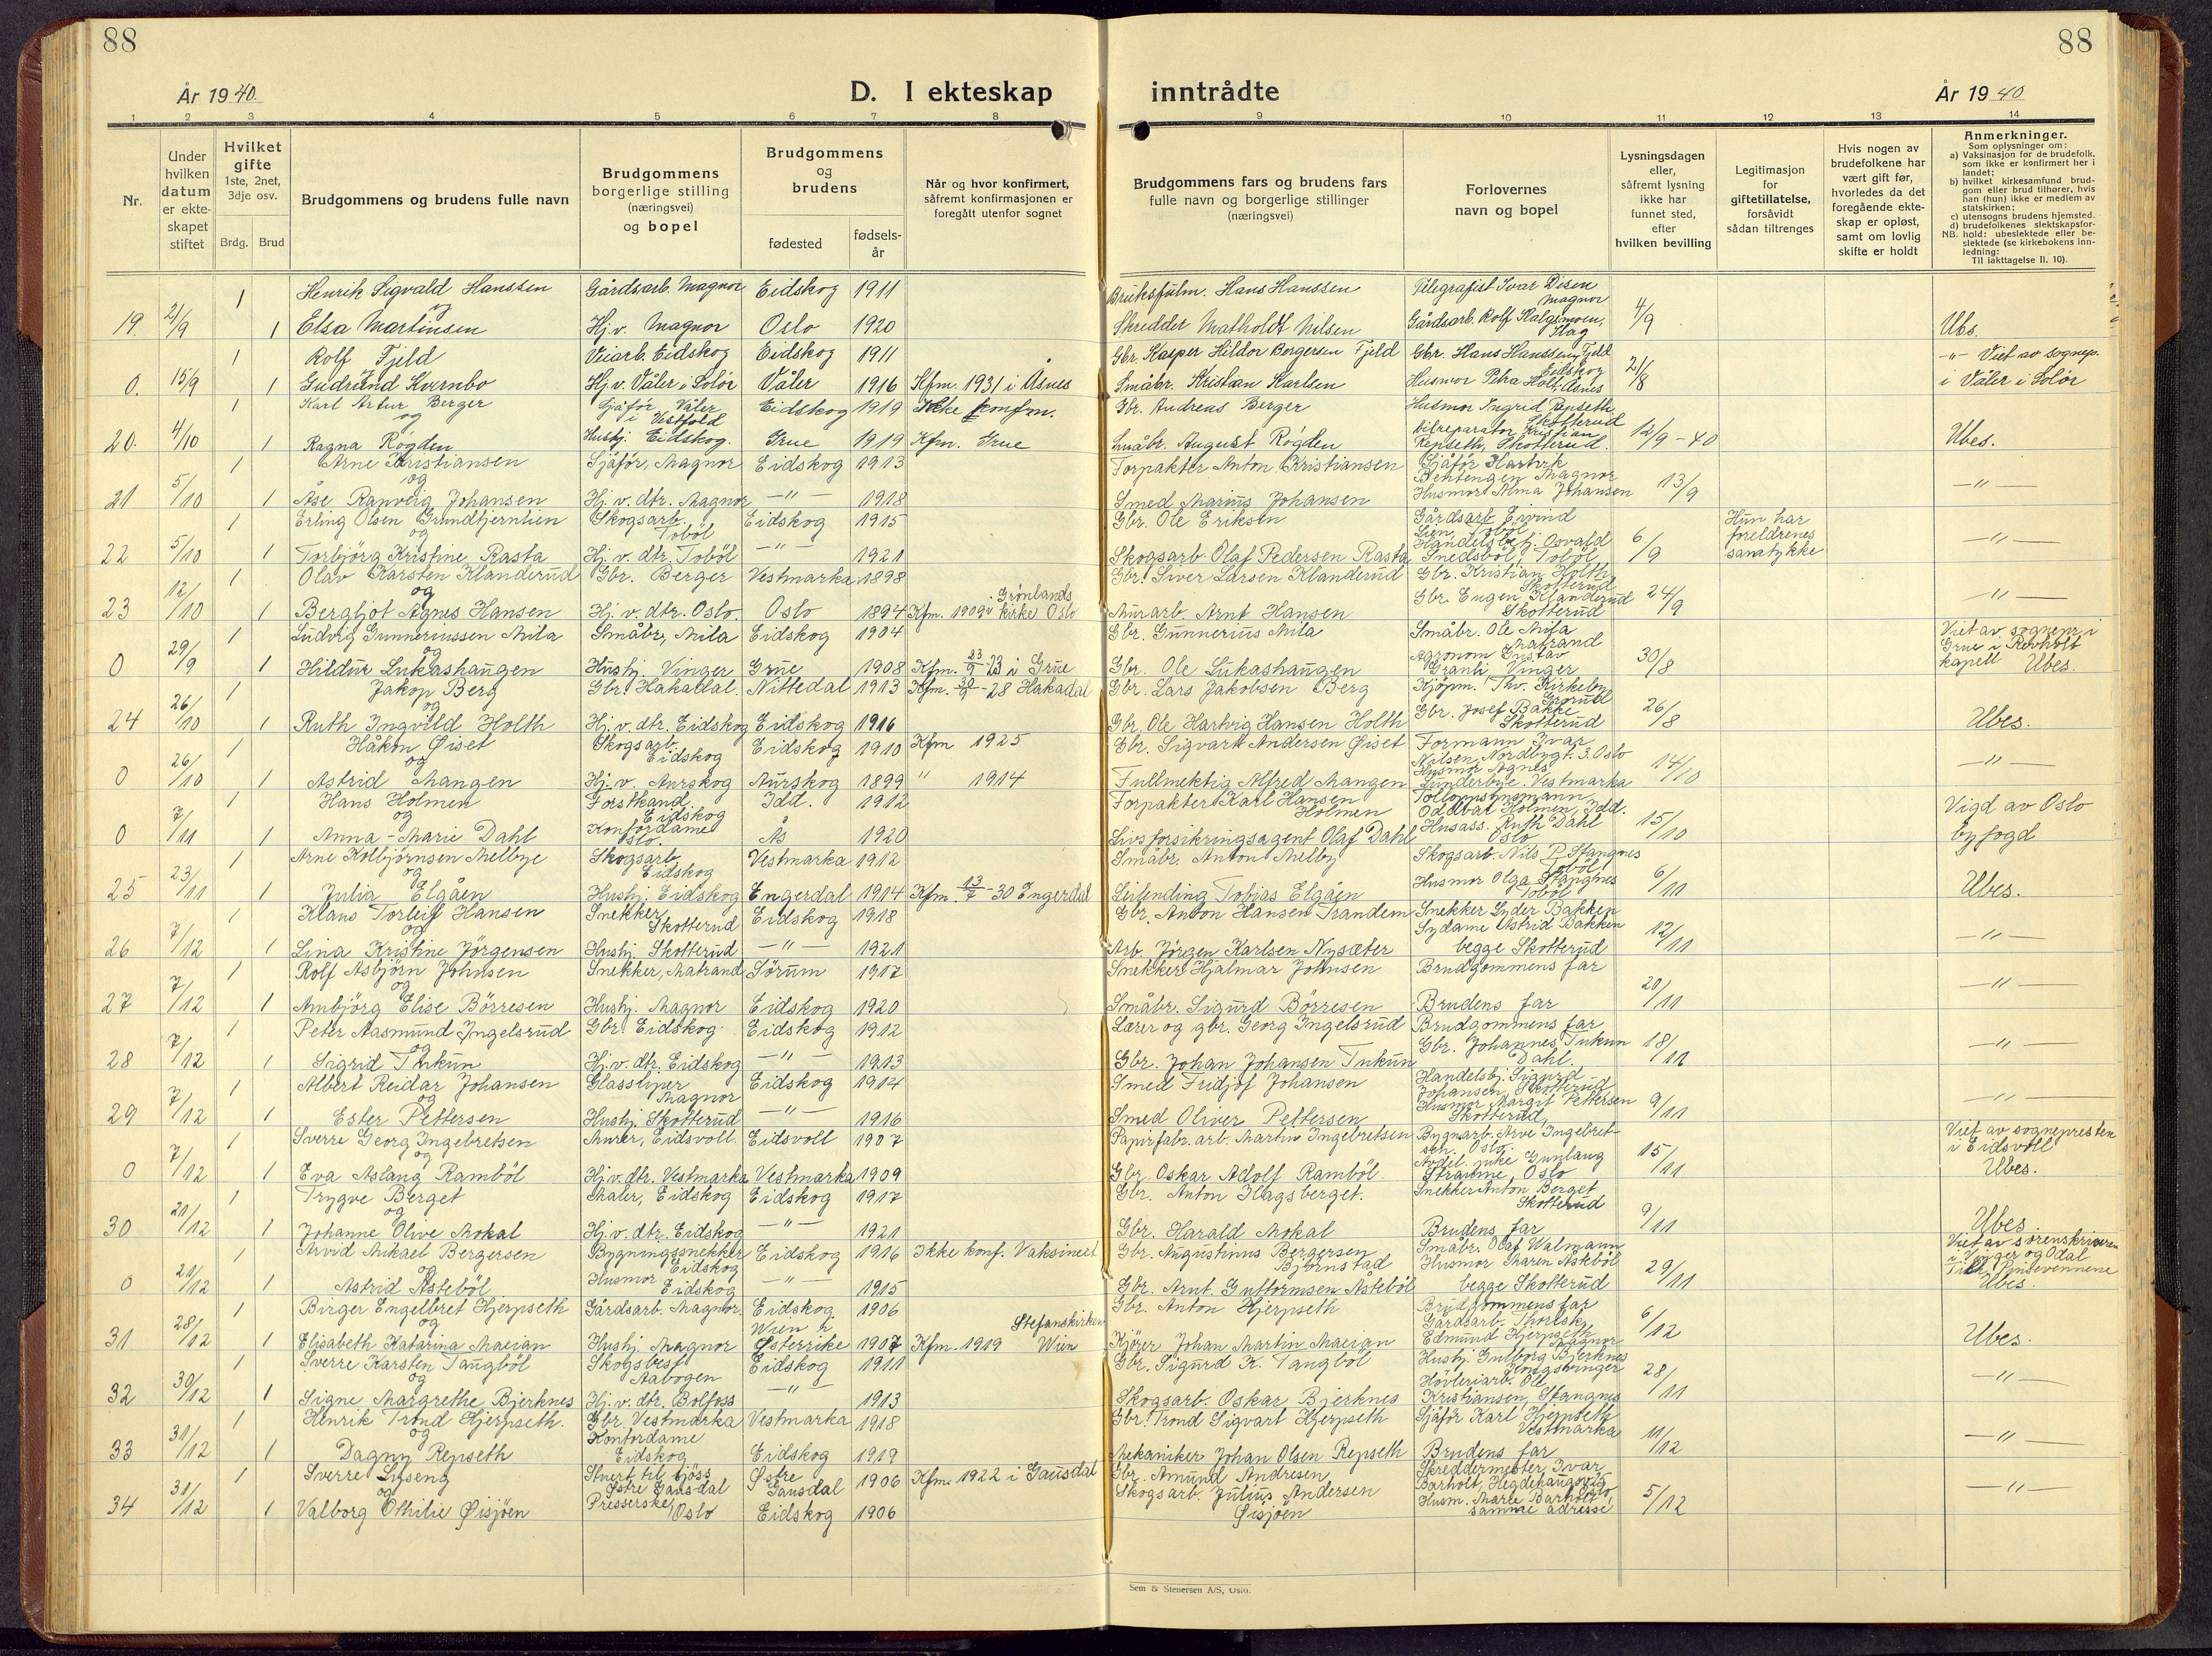 88
88
År 1940.
D. I ekteskap
inntrådte
År 1940
1 2 3 4 5 6 7 8 9 10 11 12 13 14
Nr.
Under hvilken datum er ekteskapet stiftet
Hvilket gifte
1ste, 2net, 3dje osv.
Brdg. Brud
Brudgommens og brudens fulle navn
Brudgommens borgerlige stilling (næringsvei) og bopel
Brudgommens og brudens
fødested
fødsels-år
Når og hvor konfirmert, såfremt konfirmasjonen er foregått utenfor sognet
Brudgommens fars og brudens fars fulle navn og borgerlige stillinger (næringsvei)
Forlovernes navn og bopel
Lysningsdagen eller, såfremt lysning ikke har funnet sted, efter hvilken bevilling
Legitimasjon for giftetillatelse, forsåvidt sådan tiltrenges
Hvis nogen av brudefolkene har vært gift før, hvorledes da det foregående ekteskap er opløst, samt om lovlig skifte er holdt
Anmerkninger.
Som oplysninger om:
a) Vaksinasjon for de brudefolk, som ikke er konfirmert her i landet;
b) hvilket kirkesamfund brudgom eller brud tilhører, hvis han (hun) ikke er medlem av statskirken;
c) utensogns brudens hjemsted.
d) brudefolkenes slektskapsforhold: ubeslektede eller beslektede (se kirkebokens innledning:
NB. Til iakttagelse II. 10).
1 Henrik Sigvald Hanssen Gårdsarb. Magnor Eidskog 1911 Bruksfulm. Hans Hanssen Telegrafist Ivar Disen Magnor
19. 21/9 og 1 Elsa Martinsen Hj.v. Magnor Oslo 1920 Skredder Matholdt Nilsen Gårdsarb. Rolf Skag 4/9 Ubs.
1 Rolf Fjeld Veiarb. Eidskog Eidskog 1911 Gbr. Kasper Hildor Bergersen Fjeld Gbr. Hans Hanssen Fjeld Eidskog -"- Viet av sognep.
0. 15/9 1 Gudrund Kvernbo Hj.v. Våler i Solør Våler 1916 Kfm. 1931 i Åsnes Småbr. Kristian Karlsen Husmor Petra Holt, Åsnes 21/8 i Våler i Solør
1 Karl Artur Berger Sjåfør Våler i Vestfold Eidskog 1919 Ikke konfm. Gbr. Andreas Berger Husmor Ingrid Repseth Skotterud
20. 4/10 og 1 Ragna Rögden Hushj. Eidskog. Grue 1919 Kfm. Grue Småbr. August Rögden Bilreparatør Kristian Repseth, Skotterud 12/9-40 Ubes.
1 Arne Kristiansen Sjåför, Magnor Eidskog 1913 Forpakter Anton Kristiansen Sjåför Hartvik Bentengen Magnor
21 5/10 og 1 Åse Ranveig Johansen Hj.v. dtr. Magnor -"- 1918 Smed Marius Johansen Husmor Alma Johansen 13/9 -"-
1 Erling Olsen Grundtjerntien Skogsarb. Toböl Eidskog 1915 Gbr. Ole Eriksen Gårdsarb. Eivind Lien, Toböl Hun har foreldrenes samtykke
22 5/10 og 1 Torbjörg Kristine Rasta Hj.v. dtr. Toböl -"- 1921 Skogsarb. Olaf Pedersen Rasta Handelsbetj. Osvald Smedsböl Toböl 6/9 -"-
1 Olav Karsten Klanderud Gbr. Berger Vestmarka 1898 Gbr. Siver Larsen Klanderud Gbr. Kristian Holth Skotterud
23 12/10 og 1 Bergljot Agnes Hansen Hj.v. dtr. Oslo. Oslo 1894 Kfm. 1909 v Grønlands kirke Oslo Murarb. Arnt Hansen Gbr. Eugen Klanderud Skotterud 24/9 -"-
1 Ludvig Gunneriussen Mila Småbr, Mila Eidskog 1904 Gbr. Gunnerius Mila Småbr. Ole Mila Matrand Viet av sognepr. i
0 29/9 og 1 Hildur Lukashaugen Hushj. Vinger Grue 1908 Kfm. 23/9 23 i Grue Gbr. Ole Lukashaugen Agronom Gustav Granli Vinger 30/8 Grue i Revholt kapell Ubes.
1 Jakop Berg Gbr. Hakadal. Nittedal 1913 Kfm. 30/9-28 Hakadal Gbr. Lars Jakobsen Berg Kjöpm. Thv. Kirkeby Grorud
24 26/10 og 1 Ruth Ingvild Holth Hj.v. dtr. Eidskog Eidskog 1916 Gbr. Ole Hartvig Hansen Holth Gbr. Josef Bakke Skotterud 26/8 Ubes.
1 Håkon Øiset Skogsarb. Eidskog Eidskog 1910 Kfm 1925 Gbr. Sigvart Andersen Øiset Formann Ivar Nilsen, Nordbygt. 3. Oslo
0 26/10 og 1 Astrid Mangen Hj.v. Aurskog Aurskog 1899 " 1914 Fullmektig Alfred Mangen Husmor Agnes Sunderbye. Vestmarka 14/10 -"-
1 Hans Holmen Forstkand. Eidskog Idd. 1912 Forpakter Karl Hansen Holmen Oddvar Holmen, Idd. Vigd av Oslo
0 7/11 og 1 Anna-Marie Dahl Kontordame Oslo. Ås 1920 Livsforsikringsagent Olaf Dahl Husass. Ruth Dahl Oslo 15/10 byfogd
1 Arne Kolbjörnsen Melbye Skogsarb. Eidskog Vestmarka 1912 Småbr. Anton Melby Skogsarb. Nils P. Stangnes Toböl
25 23/11 og 1 Julia Elgåen Hushj. Eidskog Engerdal 1914 Kfm. 13/7-30 Engerdal Leilending Tobias Elgåen Husmor Olga Stangnes Toböl 6/11 Ubes.
1 Klaus Torleif Hansen Snekker Skotterud Eidskog 1918 Gbr. Anton Hansen Trandem Snekker Lyder Bakken
26 7/12 og 1 Lina Kristine Jörgensen Hushj. Skotterud -"- 1921 Arb. Jörgen Karlsen Nysæter Sydame Astrid Bakken begge Skotterud 12/11 -"-
1 Rolf Asbjörn Johnsen Snekker, Matrand Sørum 1917 Snekker Hjalmar Johnsen Brudgommens far
27 7/12 og 1 Ambjörg Elise Börresen Hushj. Magnor Eidskog 1920 Småbr. Sigurd Börresen Brudens far 20/11 -"-
1 Peter Aasmund Ingelsrud Gbr. Eidskog Eidskog 1912 Lærer og gbr. Georg Ingelsrud Brudgommens far
28 7/12 og 1 Sigrid Tukun Hj.v. dtr. Eidskog -"- 1913 Gbr. Johan Johansen Tukun Gbr. Johannes Tukun Dahl 18/11 -"-
1 Albert Reidar Johansen Glassliper Magnor Eidskog 1914 Smed Fridjof Johansen Handelsbj. Sigurd Johansen Skotterud
29 7/12 og 1 Ester Pettersen Hushj. Skotterud -"- 1916 Smed Oliver Pettersen Husmor Margit Pettersen Skotterud 9/11 -"-
1 Sverre Georg Ingebretsen Murer, Eidsvoll. Eidsvoll 1907 Papirfabr. arb. Martin Ingebretsen Bygnarb. Arve Ingebretsen. Oslo Viet av sognepresten i Eidsvoll
0 7/12 og 1 Eva Aslaug Ramböl Hj.v. dtr. Vestmarka Vestmarka 1909 Gbr. Oskar Adolf Ramböl Gunlaug Stramme, Oslo 15/11 Ubes.
1 Trygve Berget Maler, Eidskog Eidskog 1917 Gbr. Anton Hagsberget. Snekker Anton Berget Skotterud
30 21/12 og 1 Johanne Olive Mokal Hj.v. dtr. Eidskog -"- 1921 Gbr. Harald Mokal Brudens far 9/11 Ubes
1 Arvid Mikael Bergersen Bygningssnekker Eidskog Eidskog 1916 Ikke konf. Vaksineet Gbr. Augustinus Bergersen Bjørnstad Småbr. Olaf Walmann Viet av sorenskriveren i Vinger og Odal
0 21/12 og 1 Astrid Åsteböl Husmor Eidskog -"- 1915 Gbr. Arnt Guttormsen Åsteböl Husmor Maren Åsteböl begge Skotterud 29/11 Tilh. Pinsevennene Ubes.
1 Birger Engelbret Hjerpseth Gårdsarb. Magnor Eidskog 1906 Gbr. Anton Hjerpseth Brudgommens far
31 28/12 og 1 Elisabeth Katarina Macian Hushj. Magnor Wien i Østerrike 1907 Kfm. 1919 Stefanskirken Wien Kjører Johan Martin Macian Gårdsarb. Thorlsk. Edmund Hjerpseth Magnor 6/12 Ubes.
1 Sverre Karsten Taugböl Skogsbest. Aabogen Eidskog 1911 Gbr. Sigurd K. Taugböl Hushj. Gulborg Bjerknes Kongsvinger
32 30/12 og 1 Signe Margrethe Bjerknes Hj.v. dtr. Bolfoss -"- 1913 Skogsarb. Oskar Bjerknes Høvleriarb. Ole Kristiansen, Stangnes 28/11 -"-
1 Henrik Trond Hjerpseth. Gbr. Vestmarka Vestmarka 1918 Gbr. Trond Sigvart Hjerpseth Sjåför Karl Hjerpseth Vestmarka
33 31/12 og 1 Dagny Repseth Kontordame Eidskog Eidskog 1919 Mekaniker Johan Olsen Repseth Brudens far 11/12 -"-
1 Sverre Lyseng Stuert til sjöss Østre Gausdal Østre Gausdal 1906 Kfm. 1922 i Gausdal Gbr. Amund Andresen Skreddermester Ivar Barholt, Hegdehaugsv.
34 31/12 og 1 Valborg Othilie Øisjöen Presserske Oslo Eidskog 1906 Skogsarb. Julius Andersen Øisjöen Husm. Marie Barholt samme adresse 5/12 -"-
Sem & Stenersen A/S, Oslo.